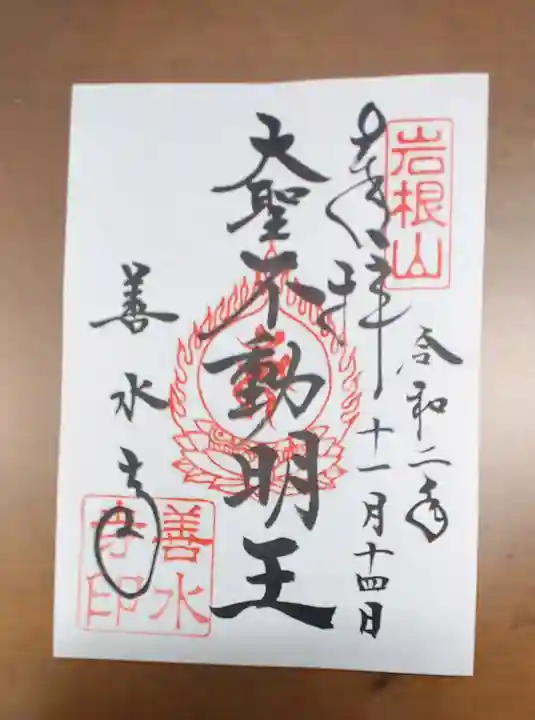 岩根山
奉拝
令和二年
十一月十四日
大聖不動明王
善水寺
善水寺印